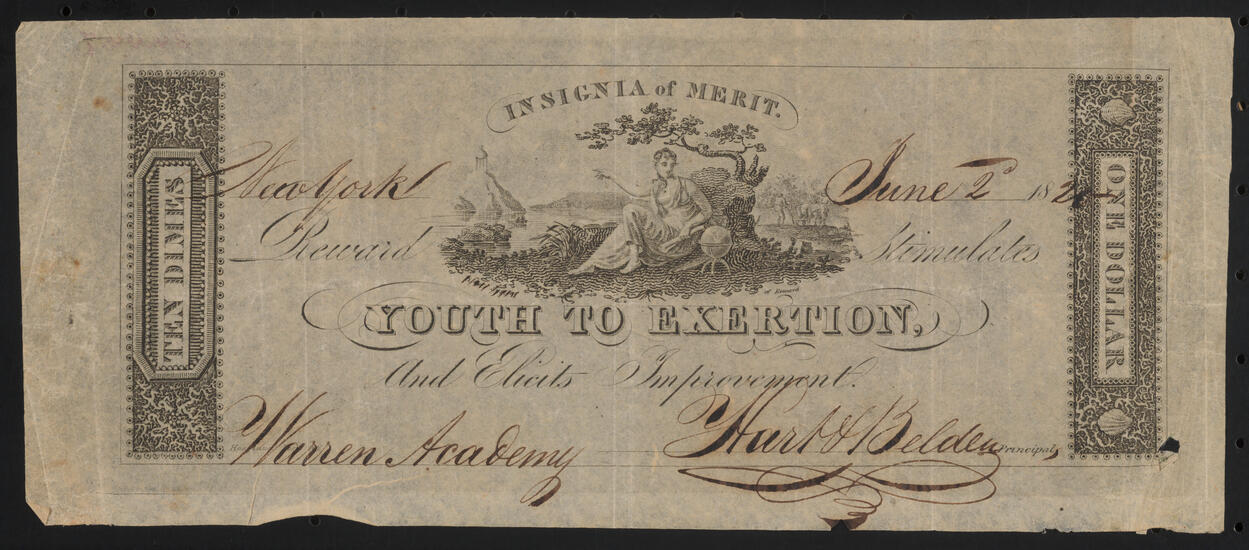 INSIGNIA of MERIT.
TEN DIMES
New York June 2d 182
ONE DOLLAR
Reward Stimulates
YOUTH TO EXERTION,
And Elicits Improvement.
Warren Academy Hart & Belden Principals